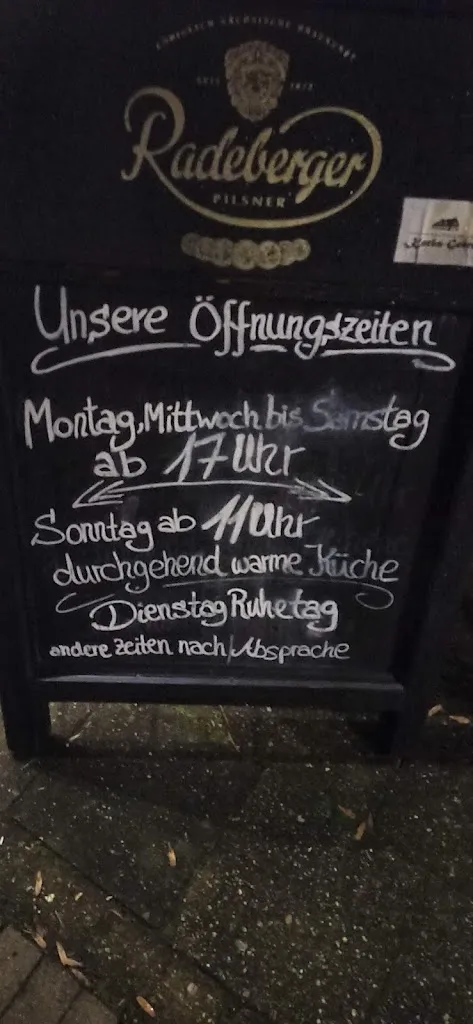 KÖNIGLICH SÄCHSISCHE BRAUKUNST
SEIT 1872
Radeberger
PILSNER
Unsere Öffnungszeiten
Montag, Mittwoch bis Samstag
ab 17 Uhr
Sonntag ab 11 Uhr
durchgehend warme Küche
Dienstag Ruhetag
andere Zeiten nach Absprache